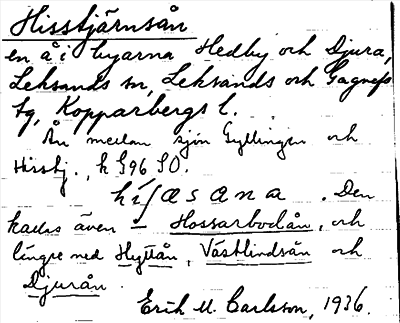 Hisstjärnsån
en å i byarna Hedby och Djura,
Leksands sn, Leksands och Gagnefs
tg, Kopparbergs l.
Ån mellan sjön Gyllingen och
Hisstj., k G96 SO.
Den
kallas även — Hossarbodån, och
längre ned Hyttån, Västlindsån och
Djurån.
Erik M. Carlsson, 1936.